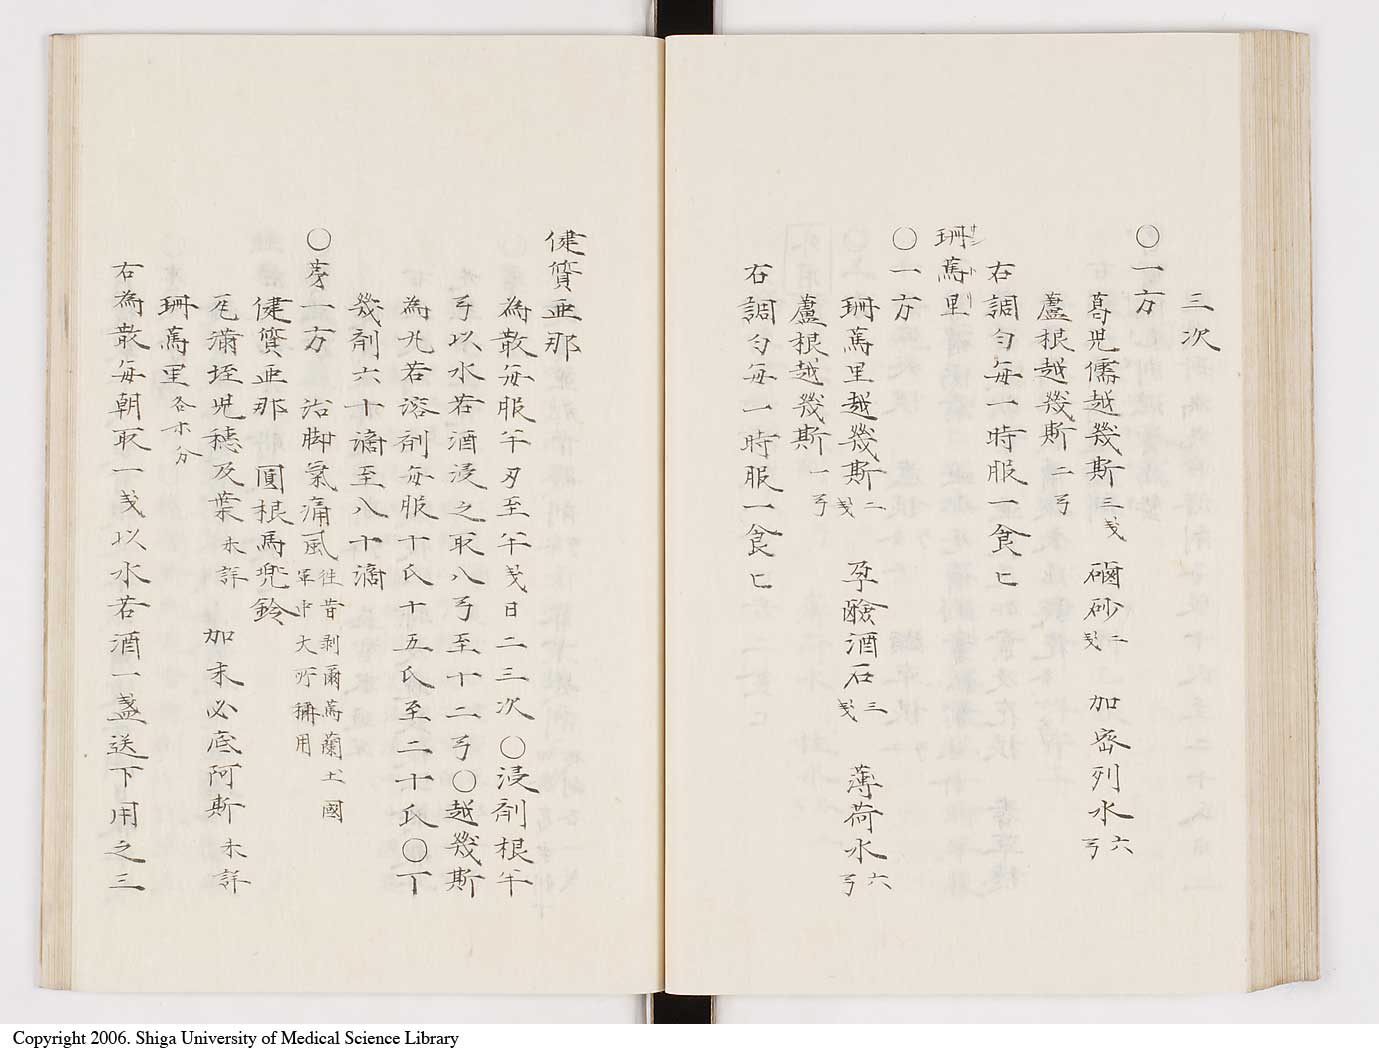 三次
〇一方
葛児儒越幾斯三戔 磠砂二戔 加密列水六弓
蘆根越幾斯二弓
右調匀毎一時服一食匕
珊篤里
サントリ
〇一方
珊篤里越幾斯二戔 孕鹼酒石三戔 薄荷水六弓
蘆根越幾斯一弓
右調匀毎一時服一食匕
健質亜那
為散毎服半刄至半戔日二三次〇浸剤根半
弓以水若酒浸之取八弓至十二弓〇越幾斯
為丸若溶剤毎服十氏十五氏至二十氏〇丁
幾剤六十滴至八十滴
〇菶一方 治脚気痛風往昔剥爾篤蘭土国
軍中大所称用
健質亜那 圓根馬兜鈴
尾満垤児穂及葉未詳 加末必底阿斯未詳
珊篤里各等分
右為散毎朝取一戔以水若酒一盞送下用之三
Copyright 2006. Shiga University of Medical Science Library